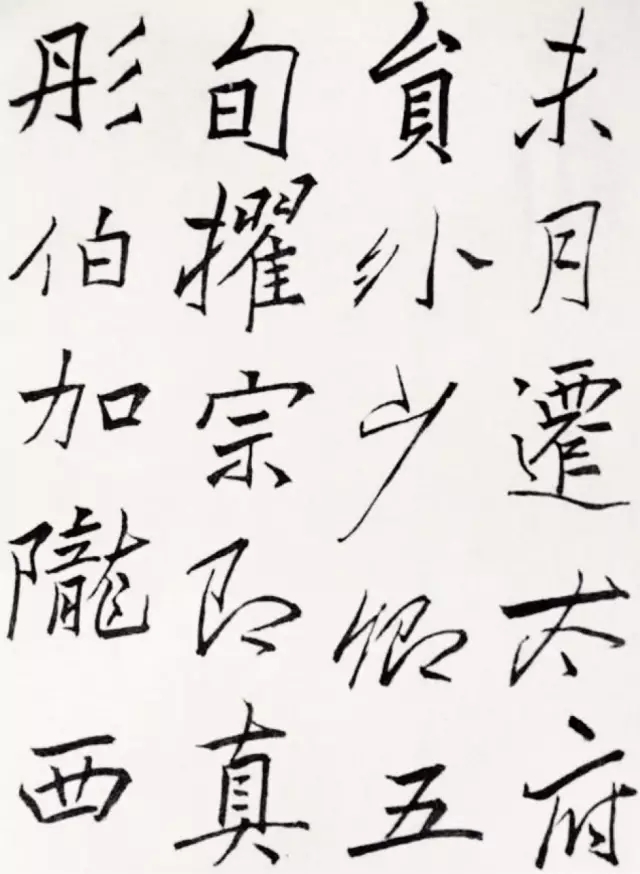 未月遷太府
貟外少卿五
旬擢宗即真
彤伯加隴西